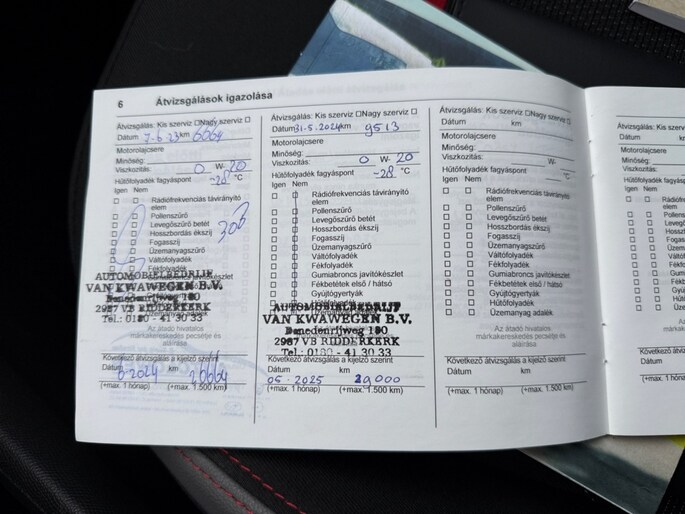 6 Átvizsgálások igazolása
Átvizsgálás: Kis szerviz Nagy szerviz
Dátum 7-6-23 km 6664
Motorolajcsere
Minőség:
Viszkozitás: 0 W- 20
Hűtőfolyadék fagyáspont -28 °C
Igen Nem
Rádiófrekvenciás távirányító
elem
Pollenszűrő
Levegőszűrő betét
Hosszbordás ékszíj
Fogasszíj
Üzemanyagszűrő
Váltófolyadék
Fékfolyadék
AUTOMOBIELBEDRIJF
VAN KWAWEGEN B.V.
Benedenrijweg 100
2987 VB RIDDERKERK
Tel.: 0180 - 41 30 33
Az átadó hivatalos
márkakereskedés pecsétje és
aláírása
Következő átvizsgálás a kijelző szerint
Dátum km
6-2024 26664
(+max. 1 hónap) (+max. 1.500 km)
Átvizsgálás: Kis szerviz Nagy szerviz
Dátum 31-5-2024 km 9513
Motorolajcsere
Minőség:
Viszkozitás: 0 W- 20
Hűtőfolyadék fagyáspont -28 °C
Igen Nem
Rádiófrekvenciás távirányító
elem
Pollenszűrő
Levegőszűrő betét
Hosszbordás ékszíj
Fogasszíj
Üzemanyagszűrő
Váltófolyadék
Fékfolyadék
Gumiabroncs javítókészlet
Fékbetétek első / hátsó
Gyújtógyertyák
AUTOMOBIELBEDRIJF
VAN KWAWEGEN B.V.
Benedenrijweg 100
2987 VB RIDDERKERK
Tel.: 0180 - 41 30 33
Következő átvizsgálás a kijelző szerint
Dátum km
05-2025 29,000
(+max. 1 hónap) (+max. 1.500 km)
Átvizsgálás: Kis szerviz Nagy szerviz
Dátum km
Motorolajcsere
Minőség:
Viszkozitás: W-
Hűtőfolyadék fagyáspont °C
Igen Nem
Rádiófrekvenciás távirányító
elem
Pollenszűrő
Levegőszűrő betét
Hosszbordás ékszíj
Fogasszíj
Üzemanyagszűrő
Váltófolyadék
Fékfolyadék
Gumiabroncs javítókészlet
Fékbetétek első / hátsó
Gyújtógyertyák
Hűtőfolyadék
Üzemanyag adalék
Az átadó hivatalos
márkakereskedés pecsétje és
aláírása
Következő átvizsgálás a kijelző szerint
Dátum km
(+max. 1 hónap) (+max. 1.500 km)
Átvizsgálás: Kis
Dátum
Motorolajcsere
Minőség:
Viszkozitás:
Hűtőfolyadék fagy
Igen Nem
Következő átvizs
Dátum
(+max. 1 hónap